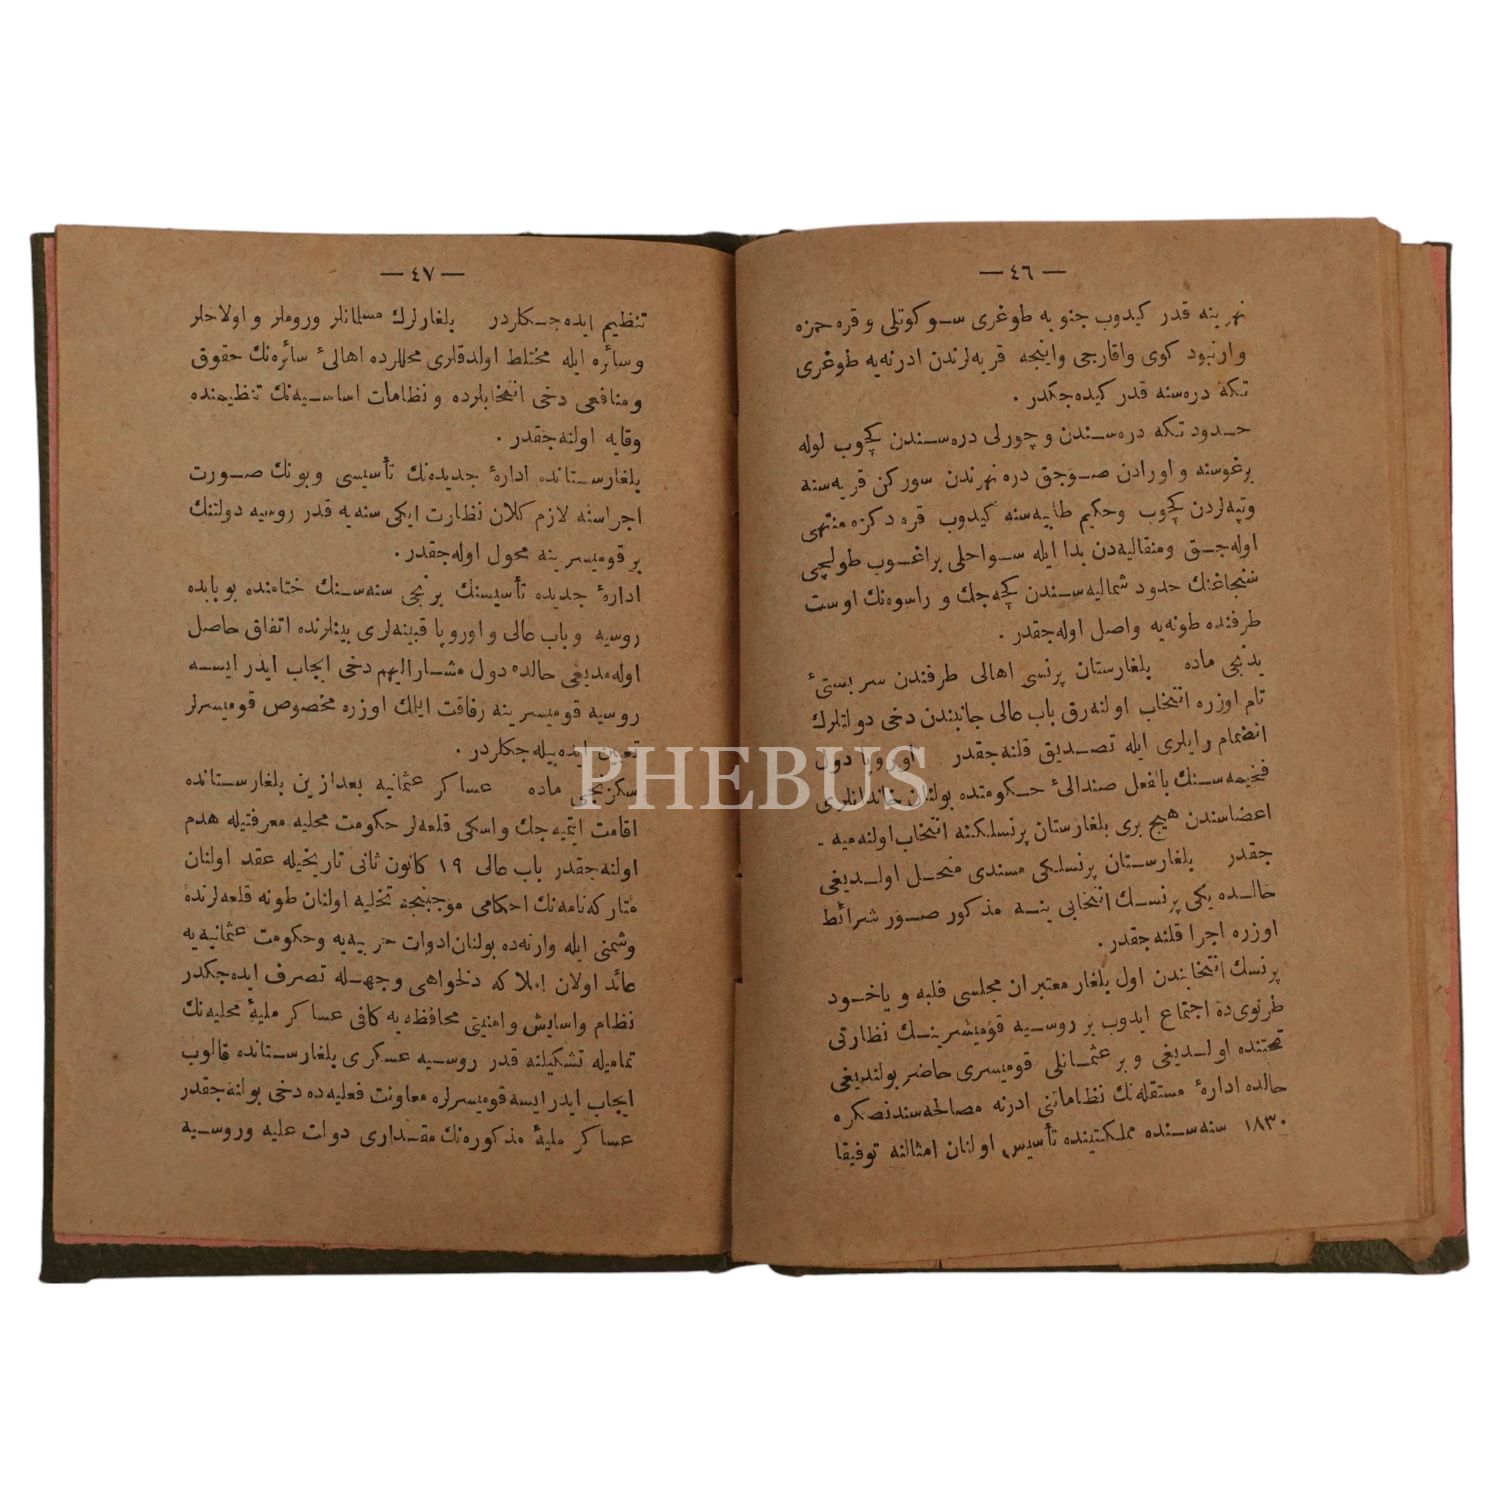 — ٤٦ —
نهرينه قدر كيدوب جنوبه طوغرى سوكوتلى و قره حمزه
وارنبود كوى واقارجى واينجه قريه‌لرندن ادرنه‌يه طوغرى
تكه دره‌سنه قدر كيده‌جكدر .
حدود تكه دره‌سندن و چورلى دره‌سندن كچوب لوله
برغوسنه و اورادن صوجق دره نهرندن سوركن قريه‌سنه
وتپه‌لردن كچوب وحكيم طابيه‌سنه كيدوب قره دكزه منتهى
اوله‌جق ومنقاليه‌دن بدا ايله سواحلى براغوب طولچى
سنجاغنك حدود شماليه‌سندن كچه‌جك و راسوه‌نك اوست
طرفنده طونه‌يه واصل اوله‌جقدر .
يدنجى ماده بلغارستان پرنسى اهالى طرفندن سربستىٔ
تام اوزره انتخاب اولنه‌رق باب عالى جانبندن دخى دولتلرك
انضمام رأيلرى ايله تصديق قلنه‌جقدر اوروپا دول
فخيمه‌سنك بالفعل صندالىٔ حكومتده بولنان خاندانلرى
اعضاسندن هيچ برى بلغارستان پرنسلكنه انتخاب اولنه‌ميه -
جقدر بلغارستان پرنسلكى مسندى منحل اولديغى
حالده يكى پرنسك انتخابى ينه مذكور صور شرائط
اوزره اجرا قلنه‌جقدر .
پرنسك انتخابندن اول بلغار معتبران مجلسى فلبه و ياخود
طرنوى‌ده اجتماع ايدوب بر روسيه قوميسرينك نظارتى
تحتنده اولديغى و بر عثمانلى قوميسرى حاضر بولنديغى
حالده ادارهٔ مستقله‌نك نظاماتنى ادرنه مصالحه‌سندنصكره
١٨٣٠ سنه‌سنده مملكتينده تأسيس اولنان امثالنه توفيقا
— ٤٧ —
تنظيم ايده‌جكلردر بلغارلرك مسلمانلر و روملر و اولاخلر
وسائره ايله مختلط اولدقلرى محللرده اهالىٔ سائره‌نك حقوق
ومنافعى دخى انتخابلرده و نظامات اساسيه‌نك تنظيمنده
وقايه اولنه‌جقدر .
بلغارستانده ادارهٔ جديده‌نك تأسيسى وبونك صورت
اجراسنه لازم كلان نظارت ايكى سنه‌يه قدر روسيه دولتنك
بر قوميسرينه محول اوله‌جقدر .
ادارهٔ جديده تأسيسنك برنجى سنه‌سنك ختامنده بوبابده
روسيه وباب عالى و اوروپا قبينه‌لرى بينلرنده اتفاق حاصل
اوله‌مديغى حالده دول مشاراليهم دخى ايجاب ايدر ايسه
روسيه قوميسرينه رفاقت ايتمك اوزره مخصوص قوميسرلر
تعيين ايده‌بيله‌جكلردر .
سكزنجى ماده عساكر عثمانيه بعدازين بلغارستانده
اقامت ايتميه‌جك واسكى قلعه‌لر حكومت محليه معرفتيله هدم
اولنه‌جقدر باب عالى ١٩ كانون ثانى تاريخيله عقد اولنان
متاركه‌نامه‌نك احكامى موجبنجه تخليه اولنان طونه قلعه‌لرنده
وشمنى ايله وارنه‌ده بولنان ادوات حربيه‌يه وحكومت عثمانيه‌يه
عائد اولان املاكه دلخواهى وجهله تصرف ايده‌جكدر
نظام واسايش وامنيتى محافظه‌يه كافى عساكر مليهٔ محليه‌نك
تماميله تشكيلنه قدر روسيه عسكرى بلغارستانده قالوب
ايجاب ايدر ايسه قوميسرلره معاونت فعليه‌ده دخى بولنه‌جقدر
عساكر مليهٔ مذكوره‌نك مقدارى دولت عليه وروسيه
PHEBUS